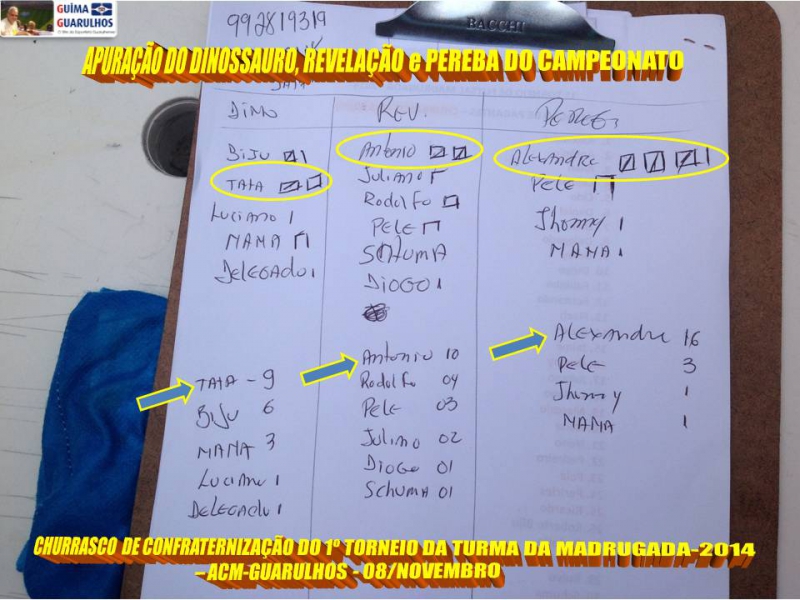 GUÍMA
GUARULHOS
992819319
BACCHI
APURAÇÃO DO DINOSSAURO, REVELAÇÃO e PEREBA DO CAMPEONATO
DINO
BIJU
TATA
LUCIANO
MAMA
DELEGADO
REV.
Antonio
JULIANO
RODOLFO
PELE
SCHUMA
DIOGO
PEREB.
Alexandre
PELE
Jhonny
MAMA
TATA - 9
BIJU 6
MAMA 3
LUCIANO 1
DELEGADO 1
Antonio 10
Rodolfo 04
Pele 03
Juliano 02
Diogo 01
SCHUMA 01
Alexandre 16
Pele 3
Jhonny 1
MAMA 1
CHURRASCO DE CONFRATERNIZAÇÃO DO 1º TORNEIO DA TURMA DA MADRUGADA-2014
– ACM-GUARULHOS - 08/NOVEMBRO